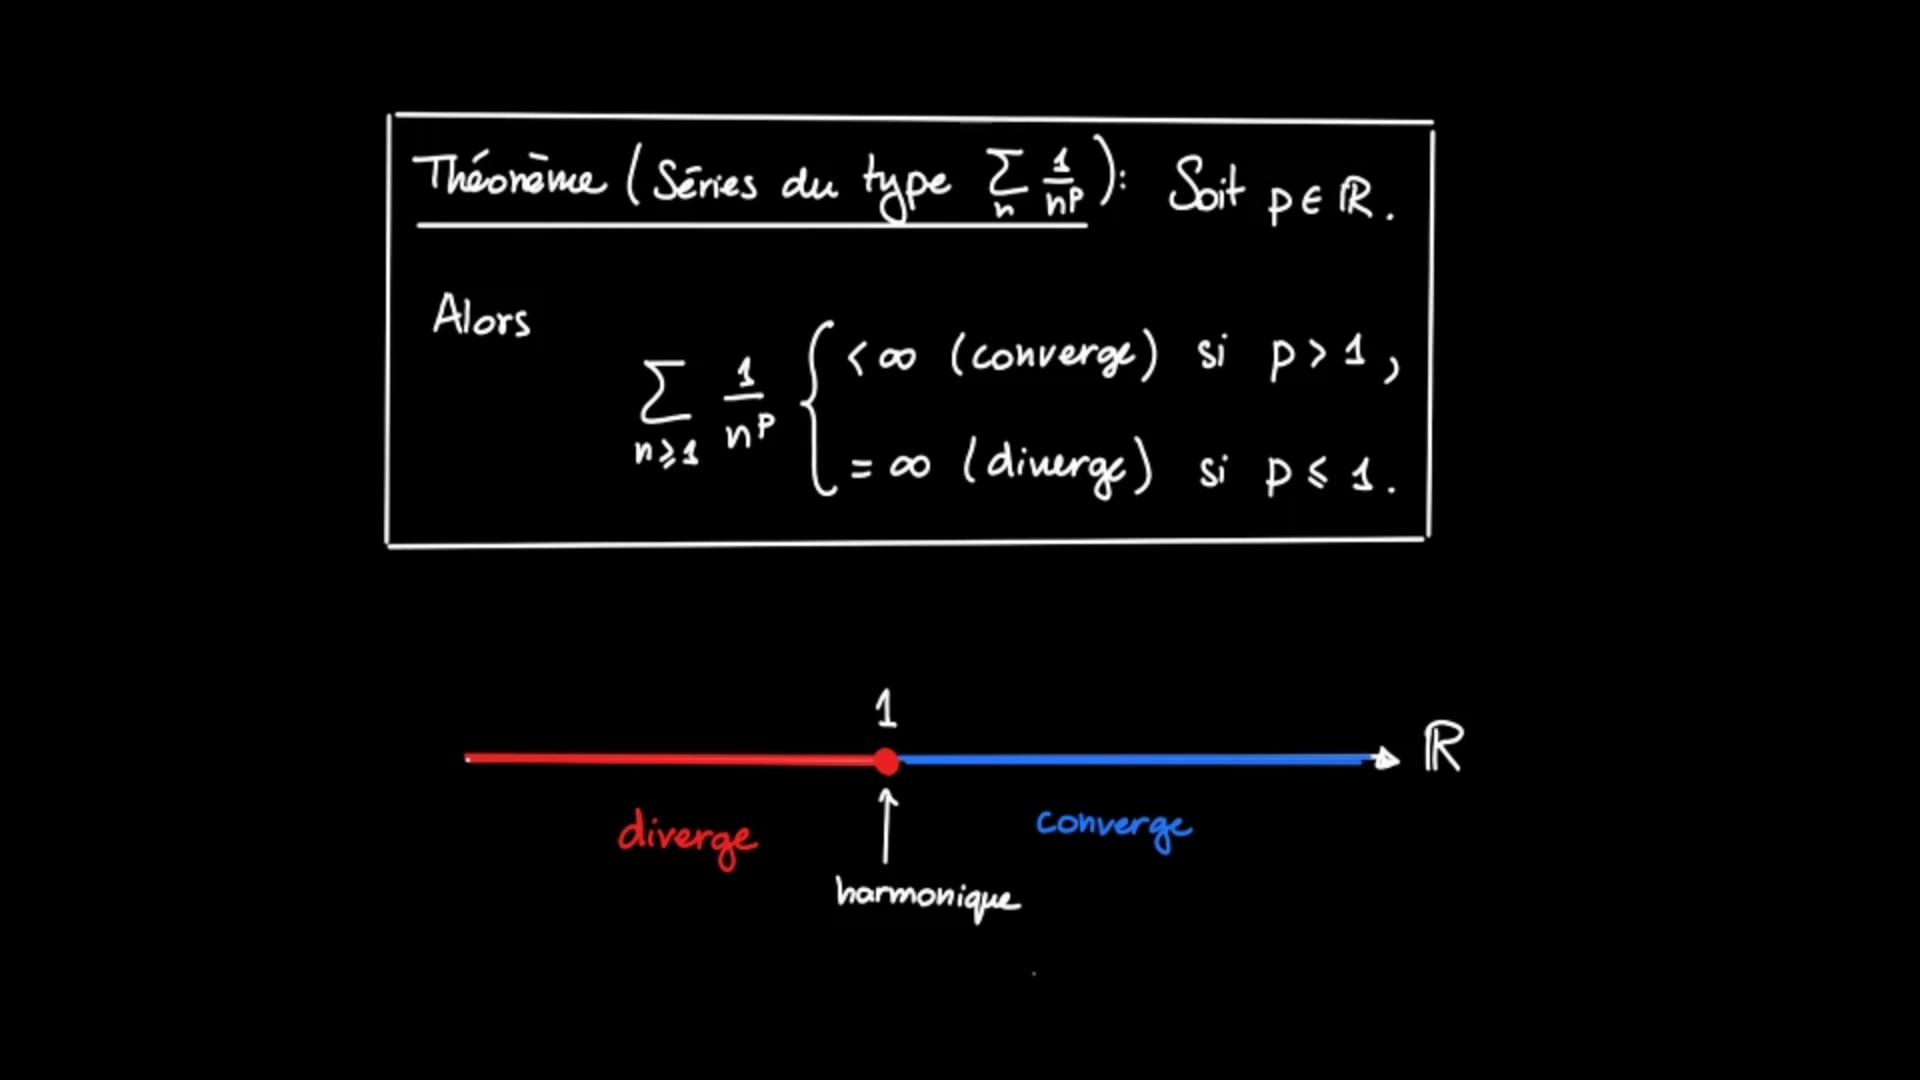 Théorème (Séries du type ∑_n 1/n^p): Soit p ∈ ℝ.
Alors
∑_{n⩾1} 1/n^p { < ∞ (converge) si p > 1,
= ∞ (diverge) si p ⩽ 1.
1
ℝ
diverge converge
harmonique